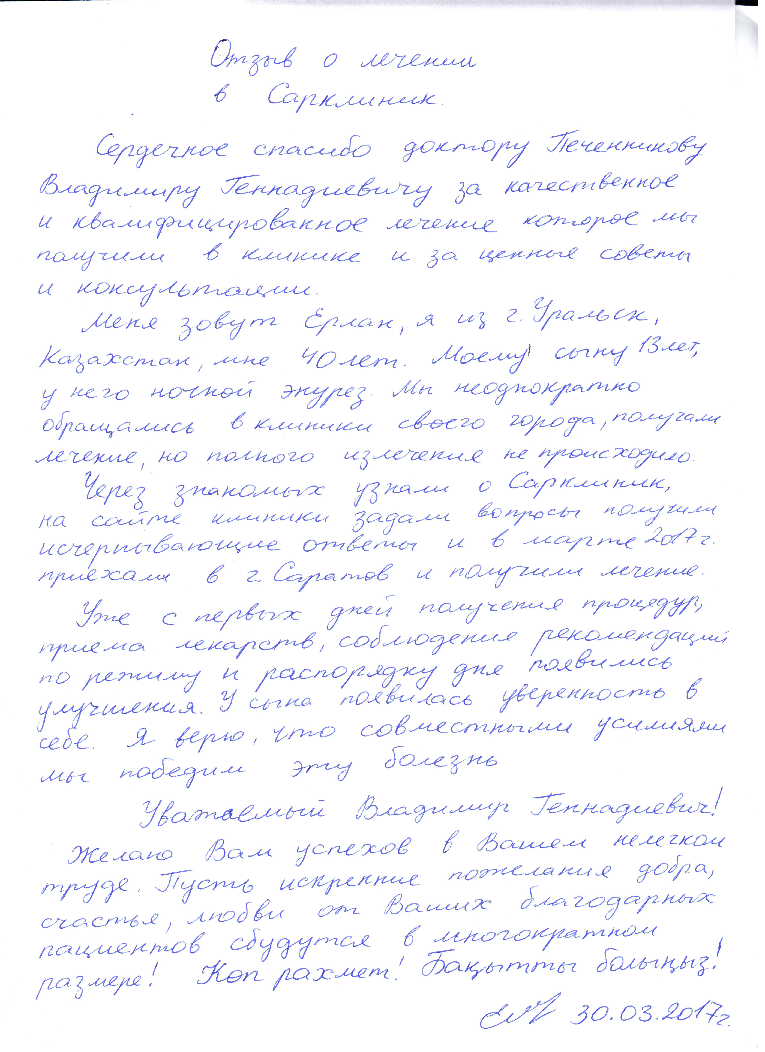 Отзыв о лечении
в Сарклиник.
Сердечное спасибо доктору Печенникову
Владимиру Геннадиевичу за качественное
и квалифицированное лечение которое мы
получили в клинике и за ценные советы
и консультации.
Меня зовут Ерлан, я из г. Уральск,
Казахстан, мне 40 лет. Моему сыну 13 лет,
у него ночной энурез. Мы неоднократно
обращались в клиники своего города, получали
лечение, но полного излечения не происходило.
Через знакомых узнали о Сарклиник,
на сайте клиники задали вопросы получили
исчерпывающие ответы и в марте 2017 г.
приехали в г. Саратов и получили лечение.
Уже с первых дней получения процедур,
приема лекарств, соблюдения рекомендаций
по режиму и распорядку дня появились
улучшения. У сына появилась уверенность в
себе. Я верю, что совместными усилиями
мы победим эту болезнь
Уважаемый Владимир Геннадиевич!
Желаю Вам успехов в Вашем нелегком
труде. Пусть искренние пожелания добра,
счастья, любви от Ваших благодарных
пациентов сбудутся в многократном
размере! Көп рахмет! Бақытты болыңыз!
30.03.2017г.